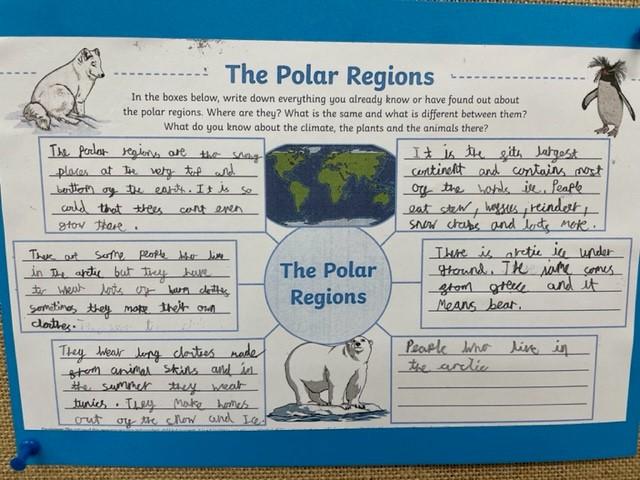 The Polar Regions
In the boxes below, write down everything you already know or have found out about
the polar regions. Where are they? What is the same and what is different between them?
What do you know about the climate, the plants and the animals there?
The polar regions are the snowy
places at the very top and
bottom of the earth. It is so
cold that trees cant even
grow there.
There art some people who live
in the arctic but they have
to wear lots of warm clothes
sometimes they make their own
clothes.
They wear long clothes made
from animal skins and in
the summer they wear
tunics. They make homes
out of the snow and Ice.
The Polar
Regions
It is the fith largest
continent and contains most
of the worlds ice. People
eat stew, reindeer,
snow crabs and lots more.
There is arctic ice under
ground. The name comes
from greece and it
Means bear.
People who live in
the arctic